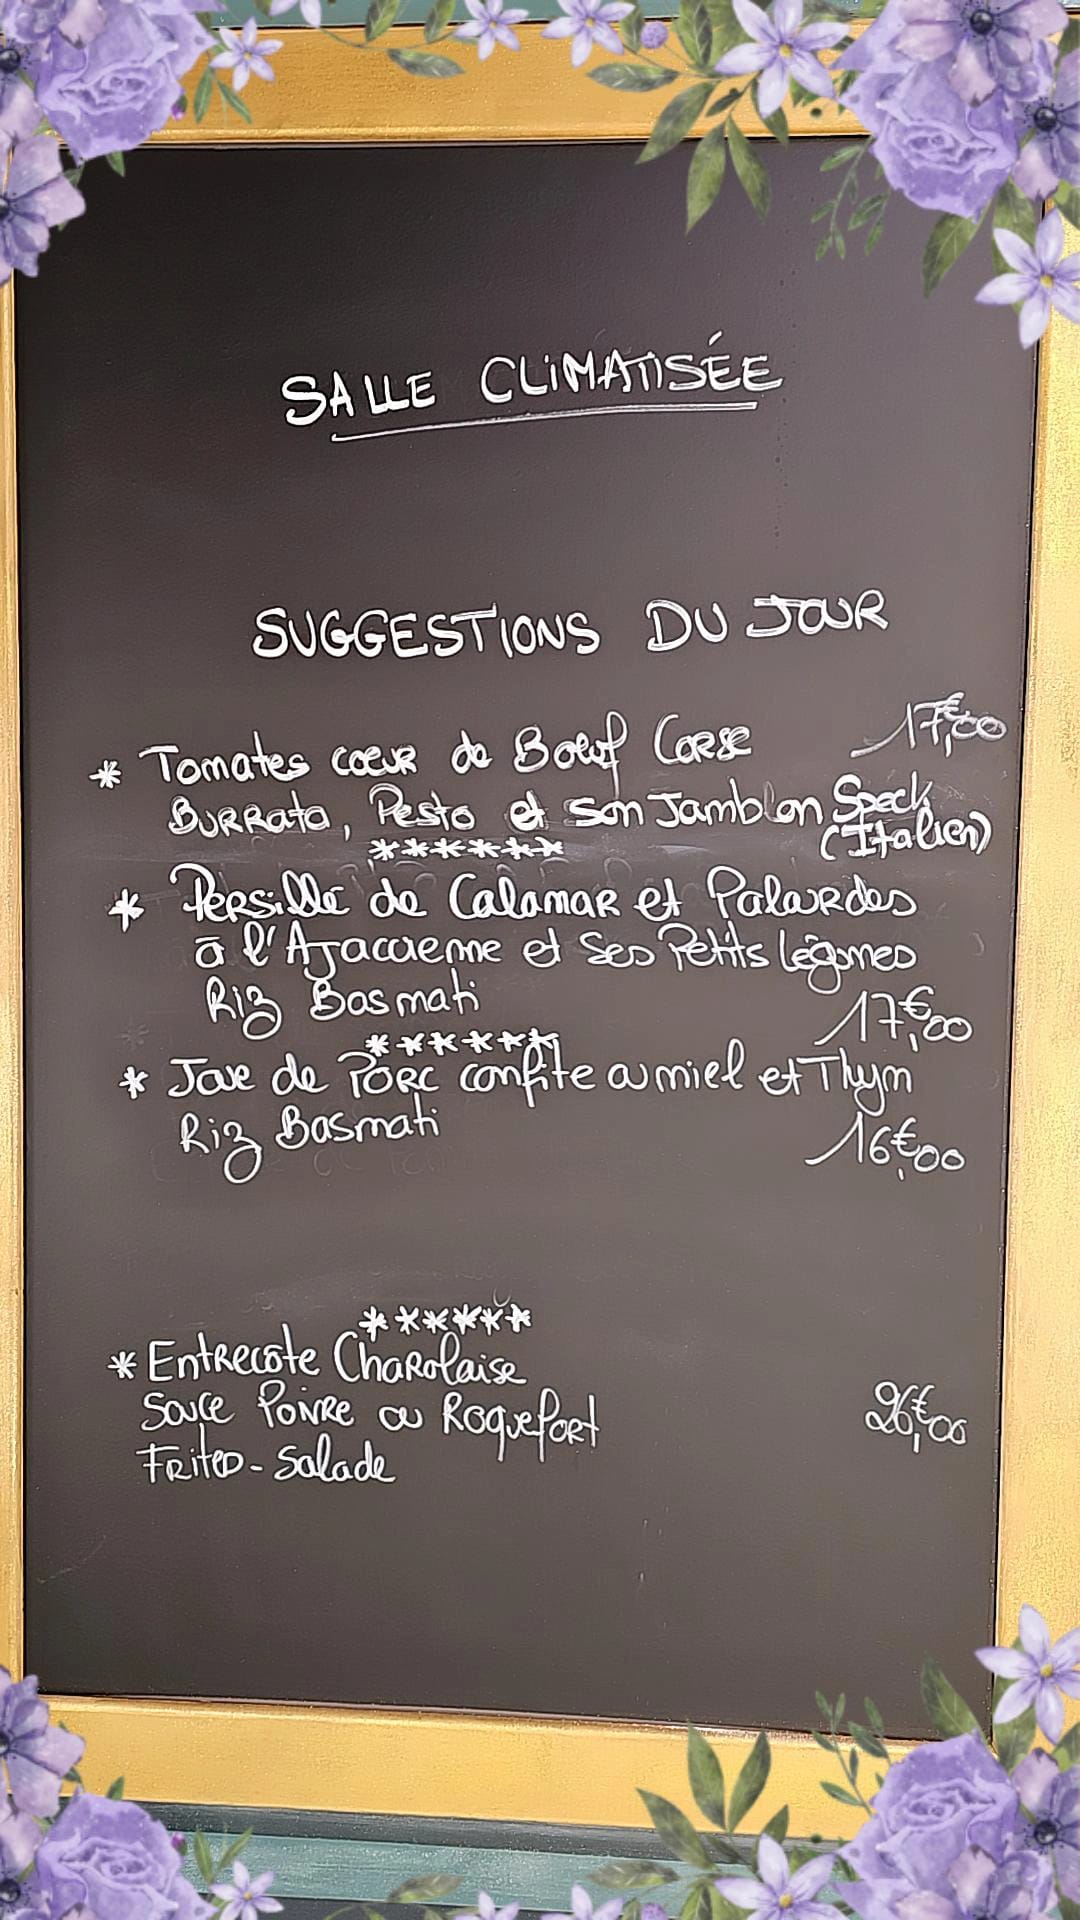 SALLE CLIMATISÉE
SUGGESTIONS DU JOUR
* Tomates cœur de Bœuf Corse 17€,00
Burrata, Pesto et son Jambon Speck
(Italien)
******
* Persillé de Calamar et Palourdes
à l'Ajaccienne et ses Petits légumes
Riz Basmati 17€,00
******
* Joue de Porc confite au miel et Thym
Riz Basmati 16€,00
******
* Entrecôte Charolaise
Sauce Poivre ou Roquefort 26€,00
Frites - Salade